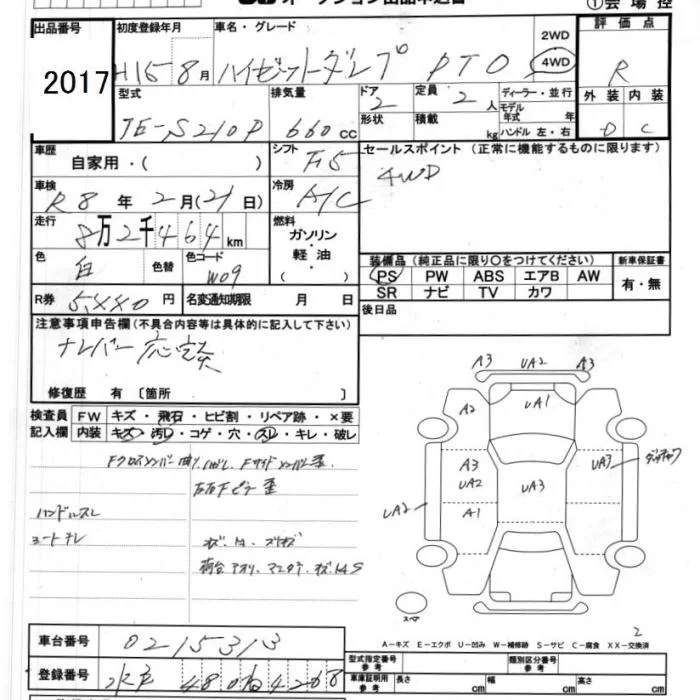 出品番号 初度登録年月 車名・グレード 2WD 評価点
2017 H15 8月 ハイゼットダンプ PTO 4WD R
型式 排気量 ドア 定員 ディーラー・並行 外装 内装
TE-S210P 660cc 2 2人 モデル年式 年 D C
形状 積載 kg ハンドル 左・右
車歴 シフト セールスポイント(正常に機能するものに限ります)
自家用・( ) F5 4WD
車検 冷房
R8年2月(21日) A/C
走行 燃料
8万2千464km ガソリン・軽油・( )
色 色替 色コード 装備品(純正品に限り○をつけてください) 新車保証書
白 W09 PS PW ABS エアB AW 有・無
SR ナビ TV カワ
R券 5,440円 名変通知期限 月 日 後日品
注意事項申告欄(不具合内容等は具体的に記入して下さい)
ナンバー応談
修復歴 有〔箇所 〕
検査員 FW キズ・飛石・ヒビ割・リペア跡・×要
記入欄 内装 キズ・汚レ・コゲ・穴・スレ・キレ・破レ
A3 UA2 A3
A2 UA1
A3 UA3
UA2 UA3
A1
UA2
ハンドルスレ
シートスレ
スペア
2
A-キズ E-エクボ U-凹み W-補修跡 S-サビ C-腐食 XX-交換済
車台番号 0215313
型式指定番号 類別区分番号
登録番号 480 4208
車庫証明用参考 長さ cm 幅 cm 高さ cm